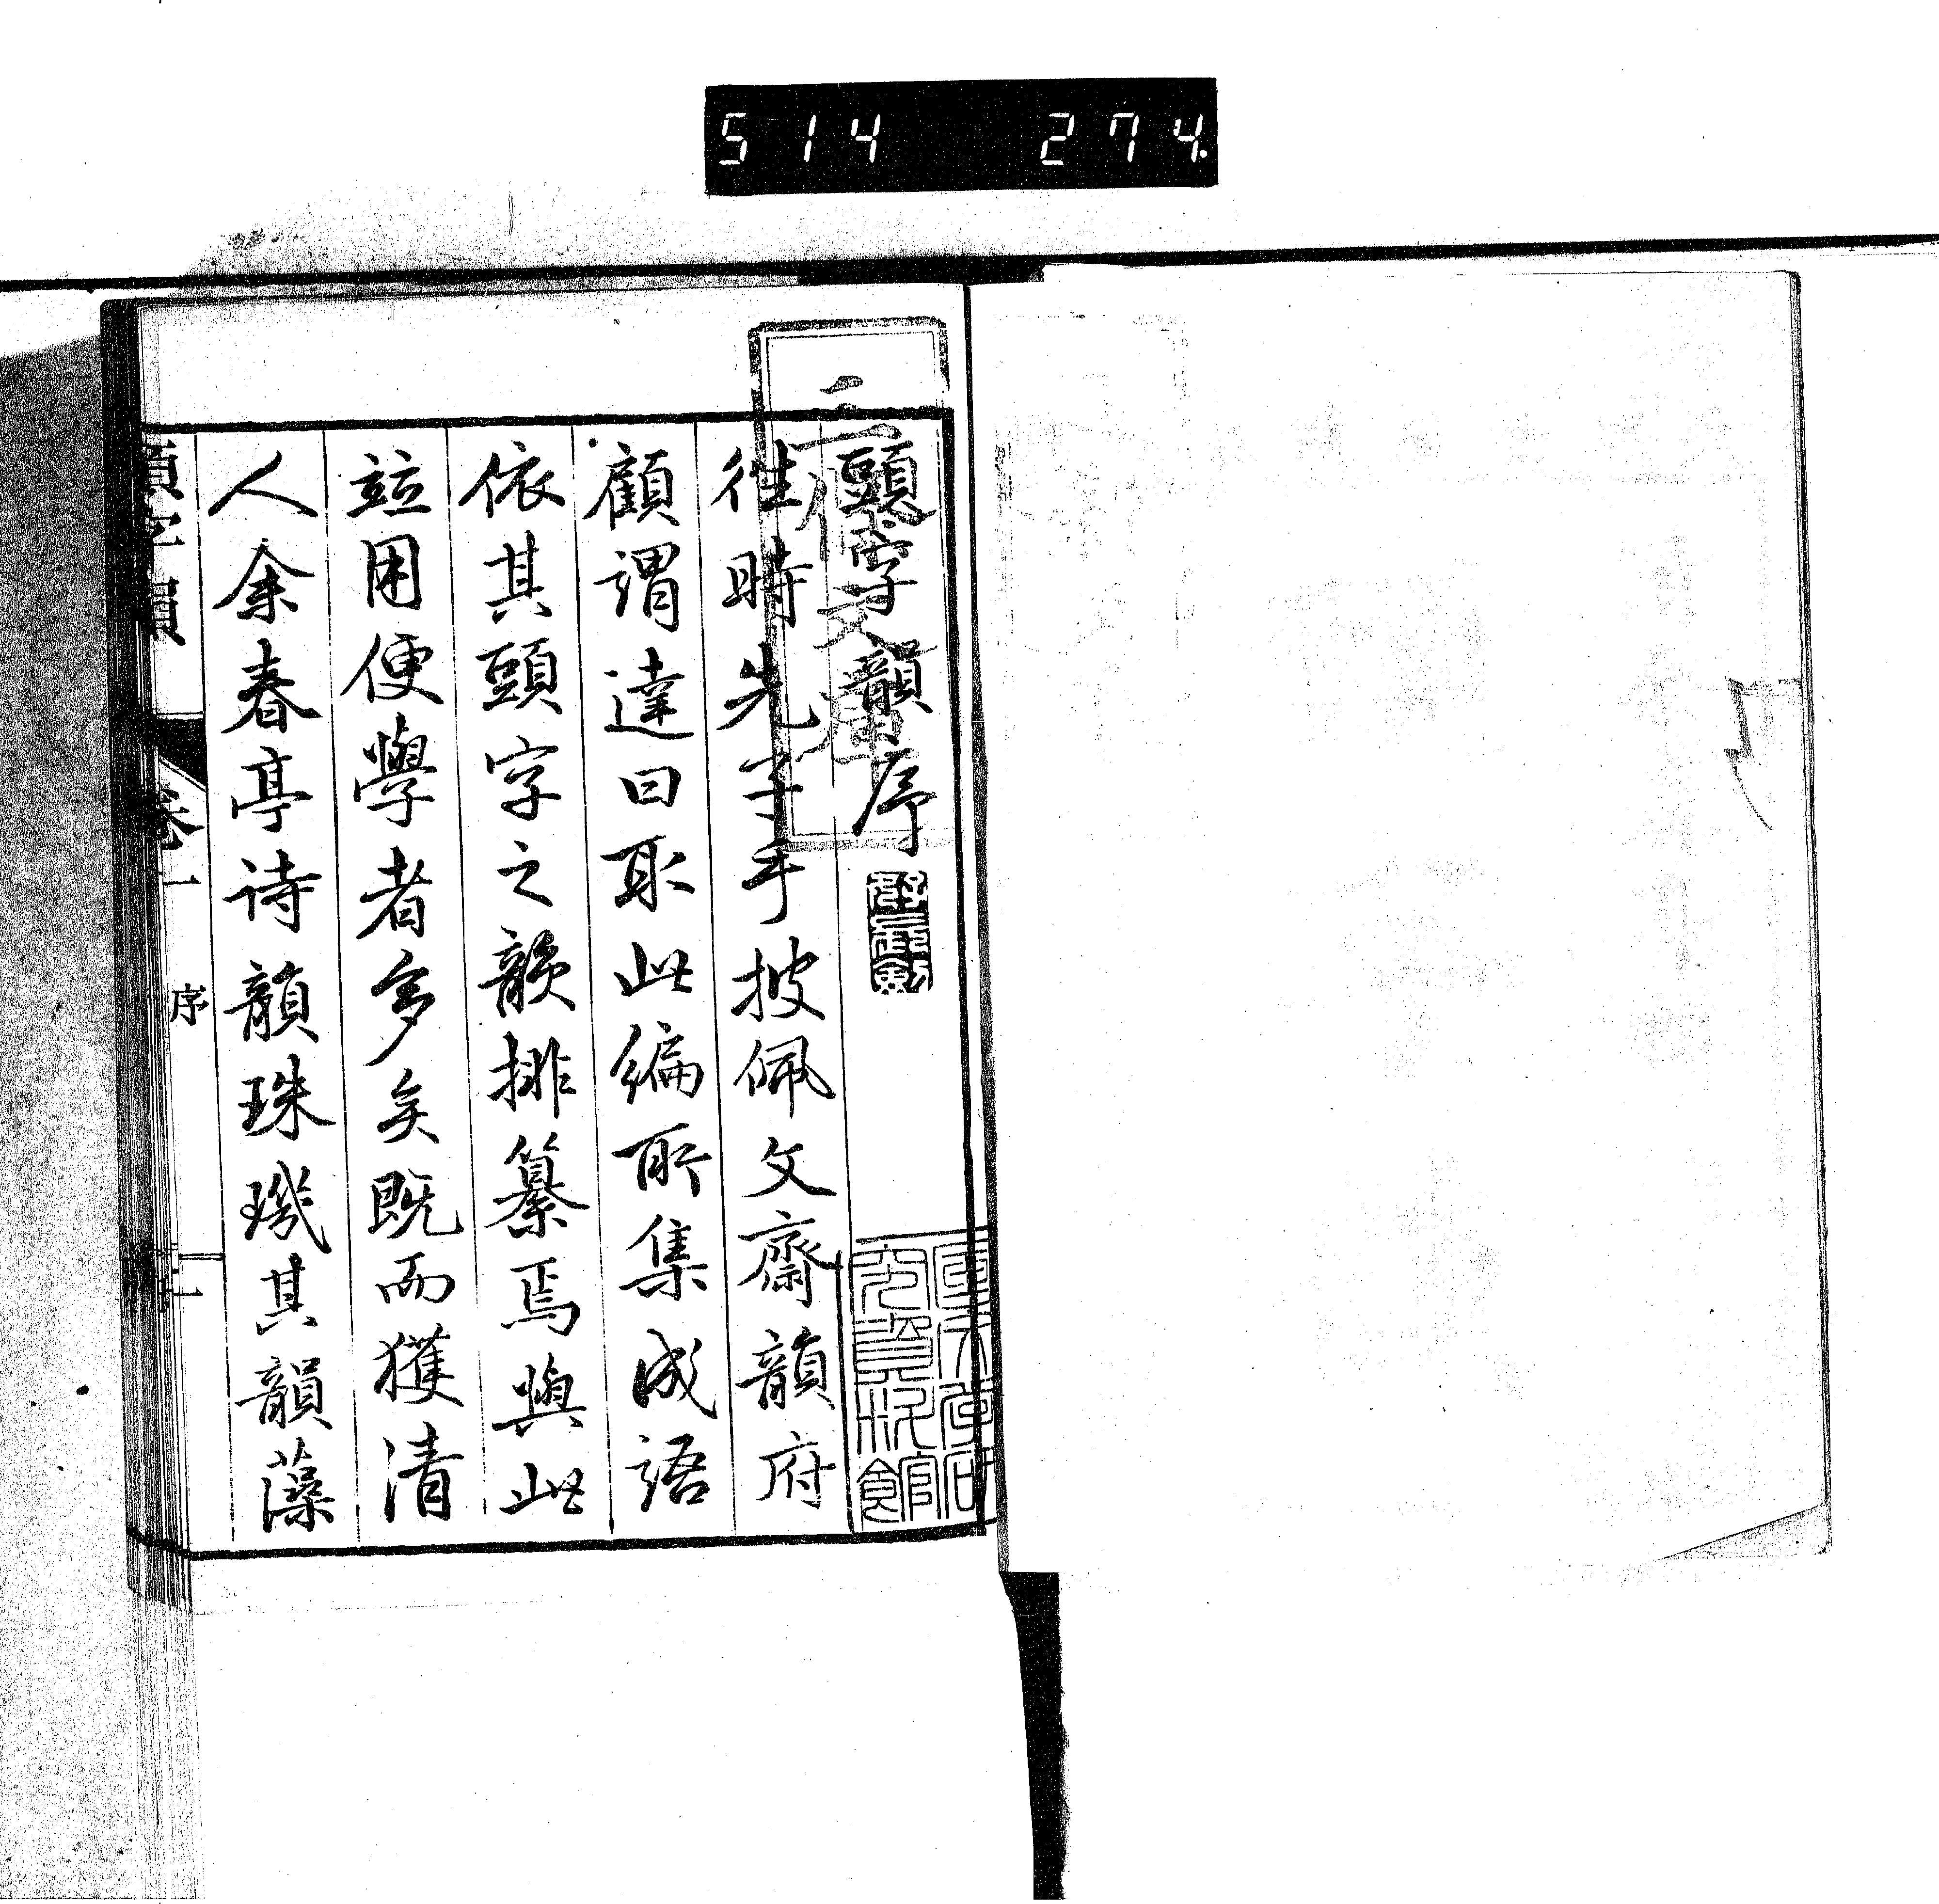 514 274.
頭字韻序
往時先子手披佩文齋韻府
顧謂達曰取此編所集成語
依其頭字之韻排纂焉與此
竝用便學者多矣既而獲清
人余春亭詩韻珠璣其韻藻
頭字韻 卷一 序 一